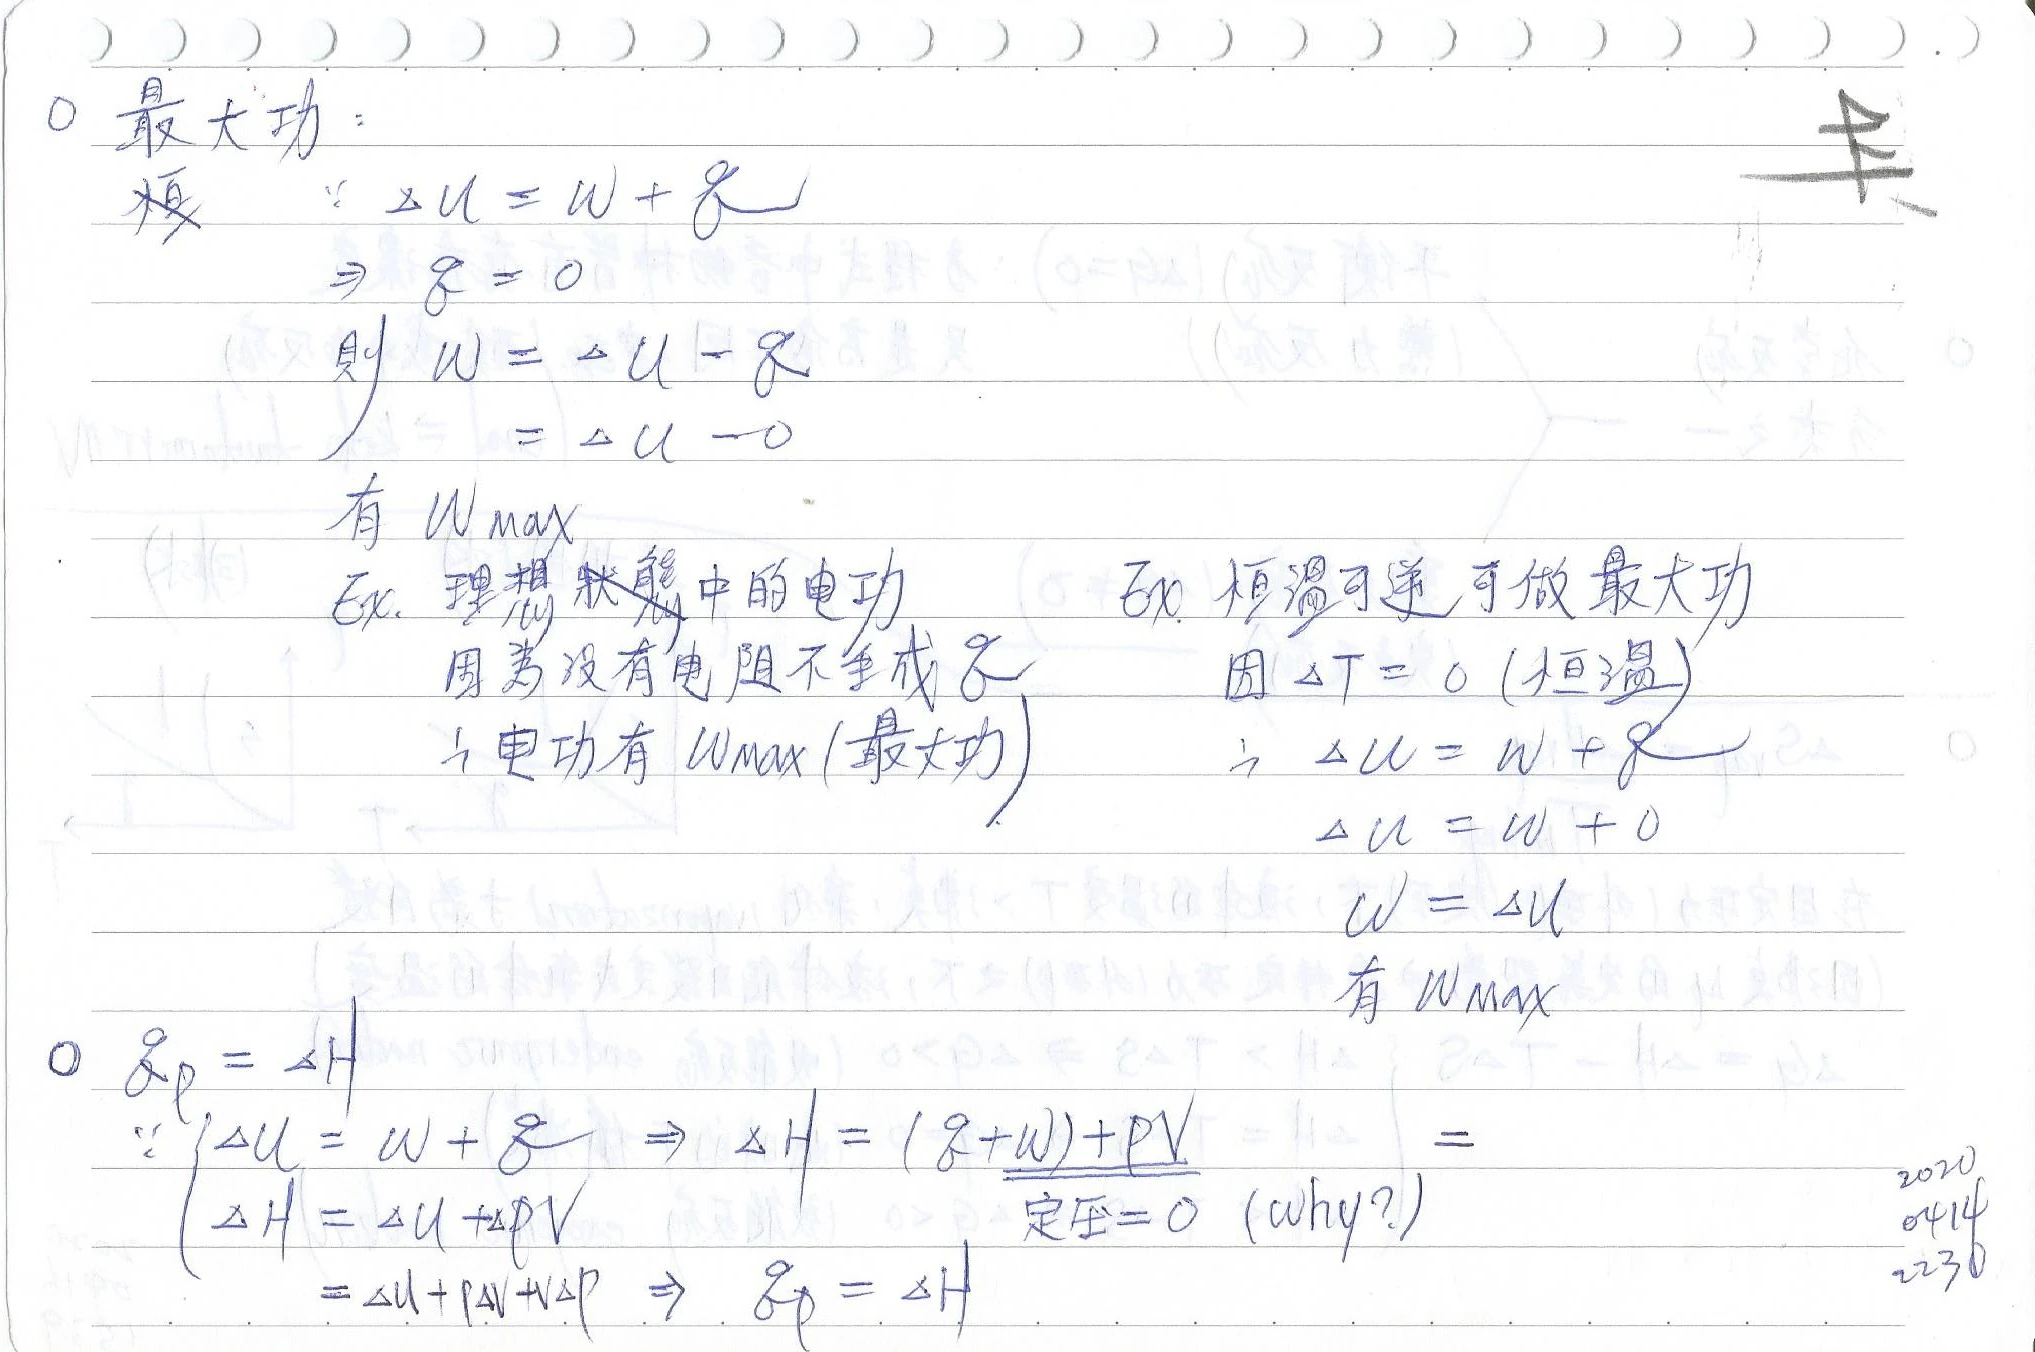 ○ 最大功：
∵ △U = W + q
⇒ q = 0
則 W = △U - q
= △U - 0
有 Wmax
Ex. 理想狀態中的电功
因為没有电阻不生成 q
∴ 电功有 Wmax (最大功)
Ex. 恒溫可逆可做最大功
因 △T = 0 (恒溫)
∴ △U = W + q
△U = W + 0
W = △U
有 Wmax
○ qp = △H
∵ { △U = W + q ⇒ △H = (q+W)+PV =
△H = △U + △PV 定压=0 (Why?)
= △U + P△V + V△P ⇒ qp = △H
2020
0414
2230